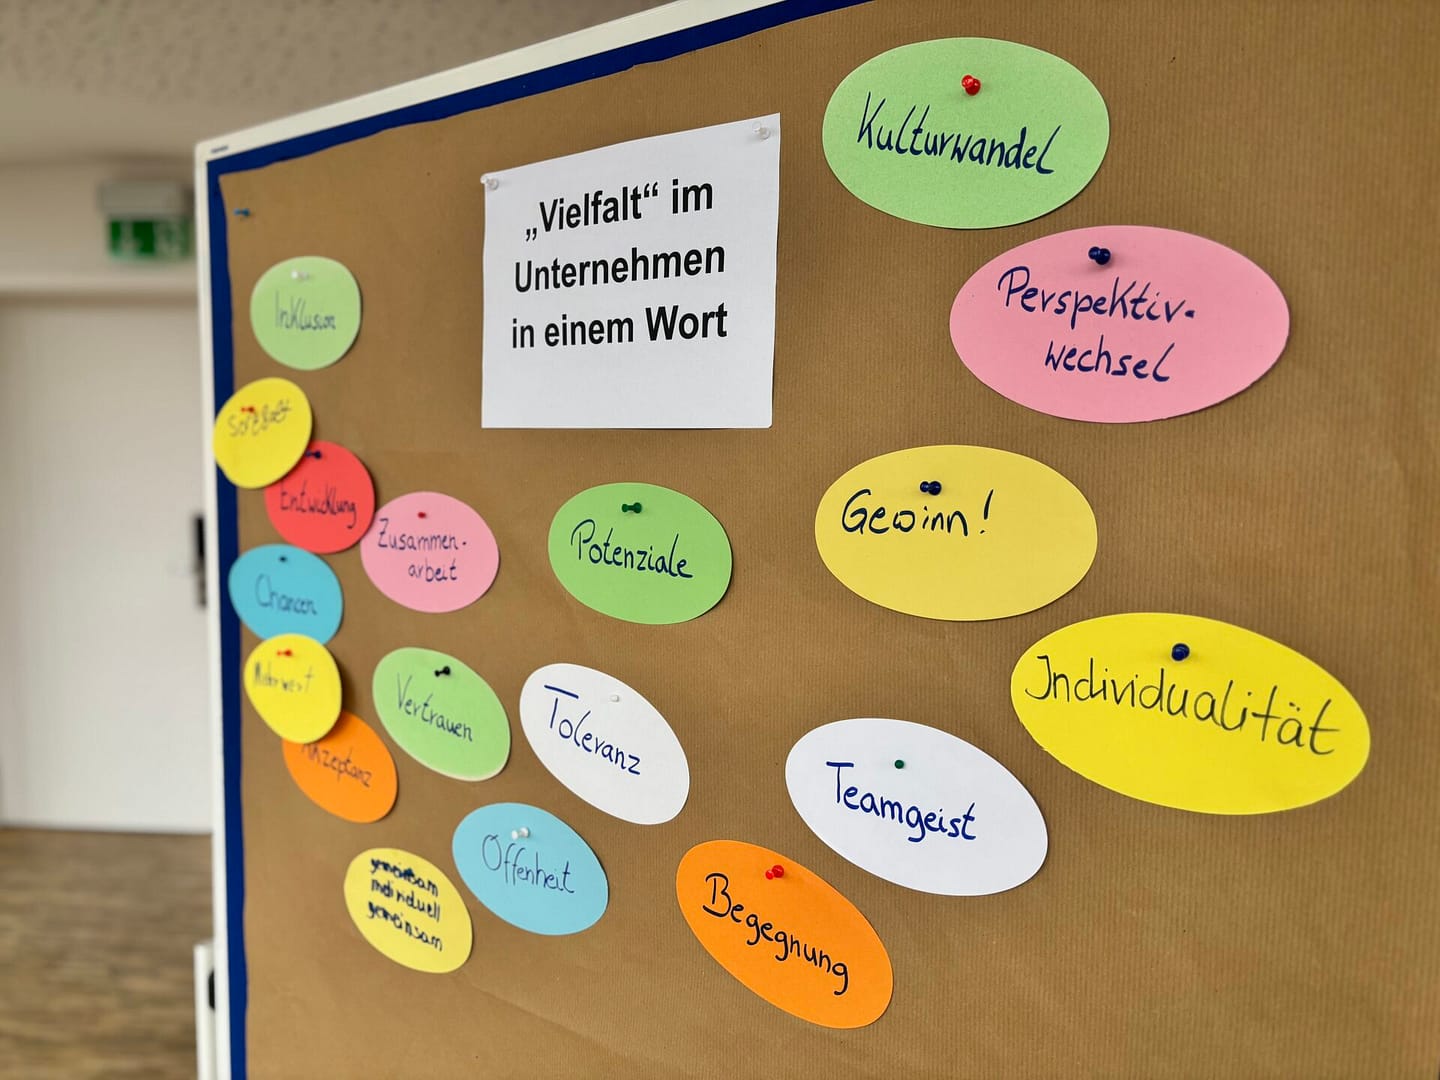 „Vielfalt“ im
Unternehmen
in einem Wort
Kulturwandel
Perspektiv-
wechsel
Inklusion
Entwicklung
Zusammen-
arbeit
Potenziale
Gewinn!
Chancen
Mehrwert
Akzeptanz
Vertrauen
Toleranz
Individualität
Teamgeist
Offenheit
Begegnung
gemeinsam
individuell
gemeinsam